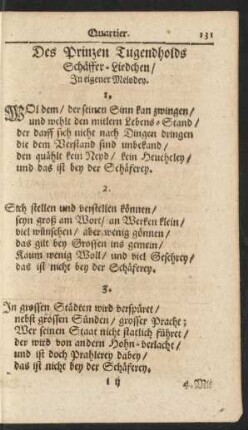 Quartier. 131
Des Prinzen Tugendholds
Schäffer-Liedchen/
In eigener Melodey.
1.
WOl dem/ der seinen Sinn kan zwingen/
und wehlt den mitlern Lebens-Stand/
der darff sich nicht nach Dingen dringen
die dem Verstand sind unbekand/
den quählt kein Neyd/ kein Heucheley/
und das ist bey der Schäferey.
2.
Sich stellen und verstellen können/
seyn groß am Wort/ an Werken klein/
viel wünschen/ aber wenig gönnen/
das gilt bey Grossen ins gemein/
Kaum wenig Woll/ und viel Geschrey/
das ist nicht bey der Schäferey.
3.
In grossen Städten wird verspüret/
nebst grossen Sünden/ grosser Pracht;
Wer seinen Staat nicht statlich führet/
der wird von andern Hohn-verlacht/
und ist doch Prahlerey dabey/
das ist nicht bey der Schäferey.
I ij 4. Mit